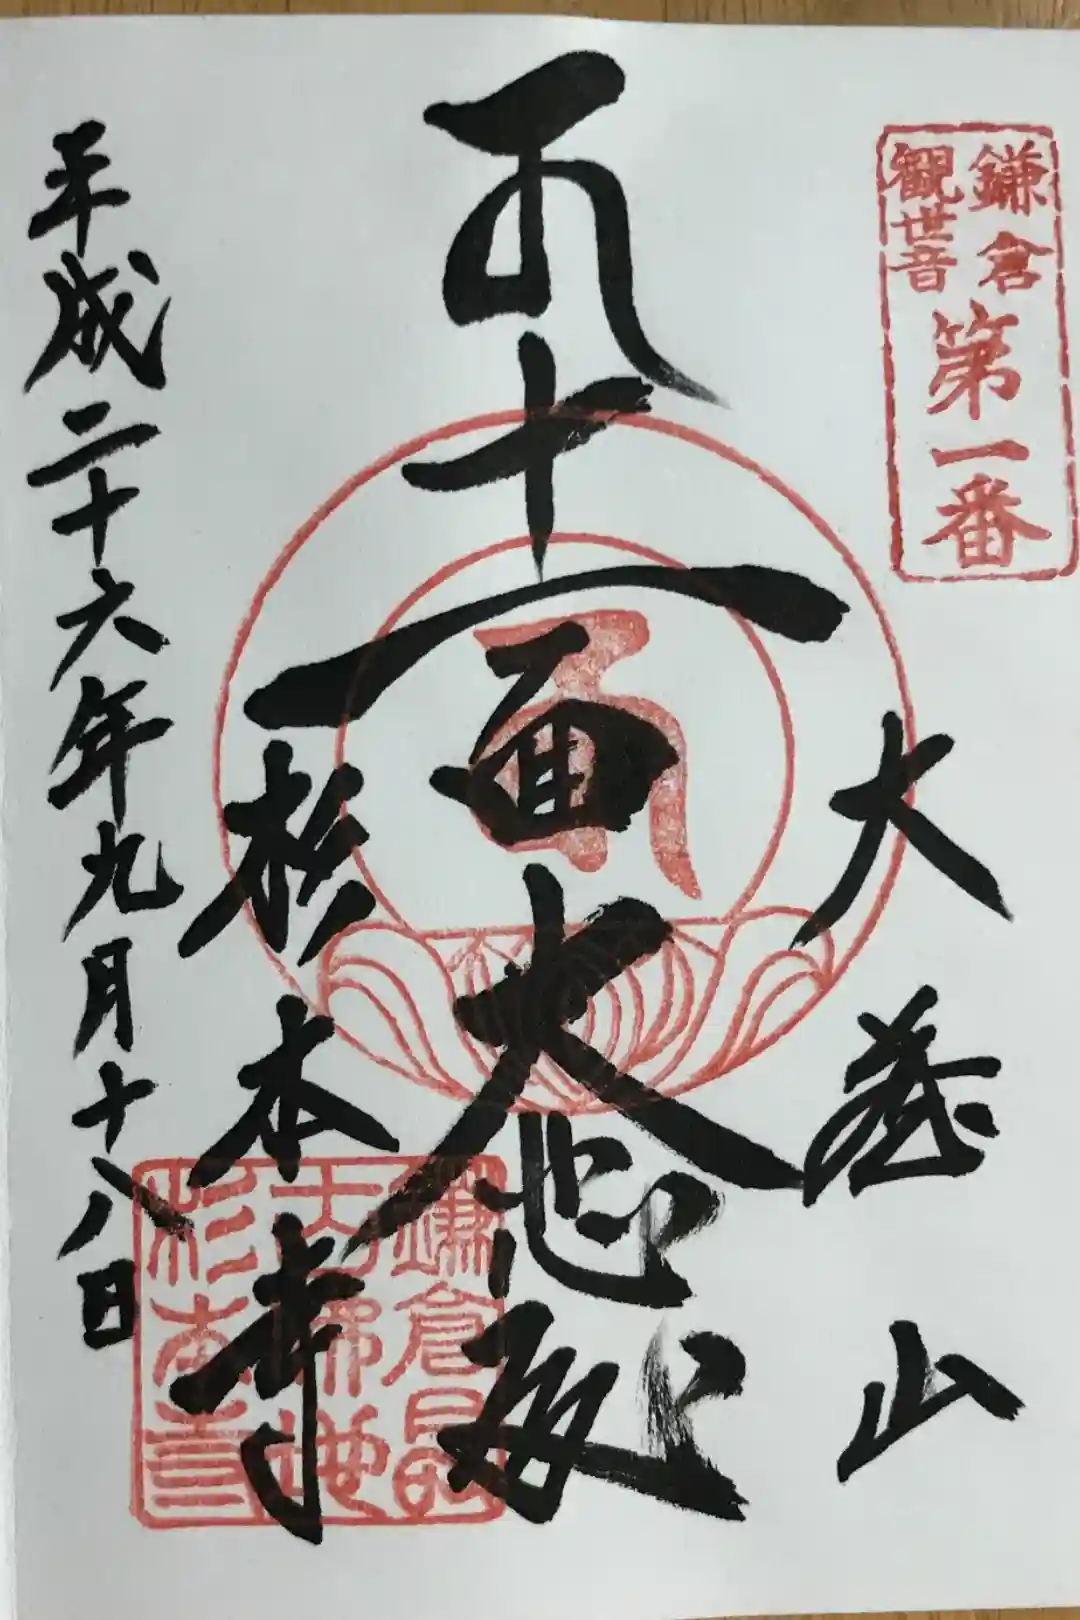 鎌倉
観世音
第一番
大蔵山
十一面大悲殿
杉本寺
平成二十六年九月十八日
杉本寺